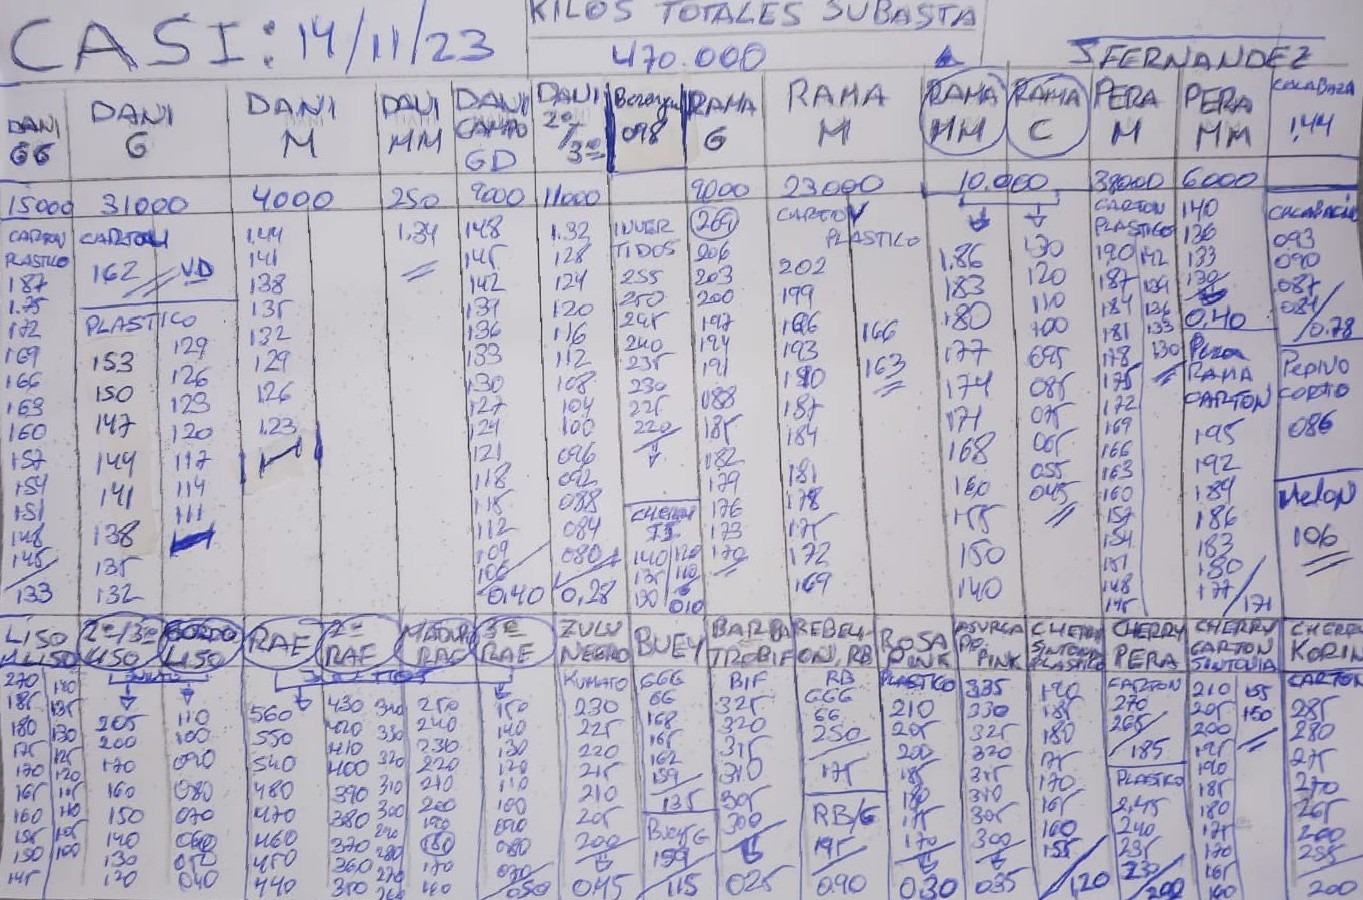 KILOS TOTALES SUBASTA
CASI: 14/11/23
470.000
J FERNANDEZ
DANI GG
DANI G
DANI M
DANI MM
DANI CAMPO GD
DANI 2ª/3ª
098
RAMA G
RAMA M
RAMA MM
RAMA C
PERA M
PERA MM
CALABAZA 1,44
15000
31000
4000
250
9000
11000
9000
23000
10.000
38000
6000
CARTON PLASTICO
187
1.75
172
169
166
163
160
157
154
151
148
145
133
CARTON
162 VD
PLASTICO
153
150
147
144
141
138
135
132
129
126
123
120
117
114
111
1.44
141
138
135
132
129
126
123
1.34
148
145
142
139
136
133
130
127
124
121
118
115
112
109
106
0,40
1.32
128
124
120
116
112
108
104
100
096
092
088
084
080
0,28
INVERTIDOS
255
250
245
240
235
230
225
220
CHERRY
140
135
130
206
203
200
197
194
191
088
185
182
179
176
173
170
CARTON
PLASTICO
202
199
196
193
190
187
184
181
178
175
172
169
166
163
1.86
183
180
177
174
171
168
160
155
150
140
130
120
110
100
095
085
075
065
055
045
CARTON PLASTICO
190
187
184
181
178
175
172
169
166
163
160
157
154
151
148
145
142
139
136
133
130
140
136
133
130
0,40
PERA RAMA CARTON
195
192
189
186
183
180
177
171
CALABACIN
093
090
087
084
0,78
PEPINO CORTO
086
MELON
106
LISO
2ª/3ª LISO
GORDO LISO
RAF
2ª RAF
MADUR RAF
3ª RAF
ZULU NEGRO
BUEY
REBELION, RB
ROSA PINK
PINK
CHERRY SINTONIA PLASTICO
CHERRY PERA
CHERRY CARTON SINTONIA
CHERRY KORIN
270
185
180
175
170
165
160
155
150
145
140
135
130
125
120
115
110
105
100
205
200
170
160
150
140
130
120
110
100
090
080
070
060
050
040
560
550
540
480
470
460
450
440
430
420
410
400
390
380
370
360
350
340
330
320
310
300
290
280
270
260
250
240
230
220
210
200
190
180
170
160
150
140
130
120
110
100
090
080
070
050
KUMATO
230
225
220
215
210
205
200
045
GGG
GG
168
165
162
159
135
BUEY G
159
115
BIF
325
320
315
310
305
300
025
RB
GGG
GG
250
175
RB/G
195
090
PLASTICO
210
205
200
185
180
175
170
030
335
330
325
320
315
310
305
300
035
190
185
180
175
170
165
160
155
120
CARTON
270
265
185
PLASTICO
2,45
240
235
230
200
210
205
200
195
190
185
180
175
170
165
160
155
150
CARTON
285
280
275
270
265
260
255
200